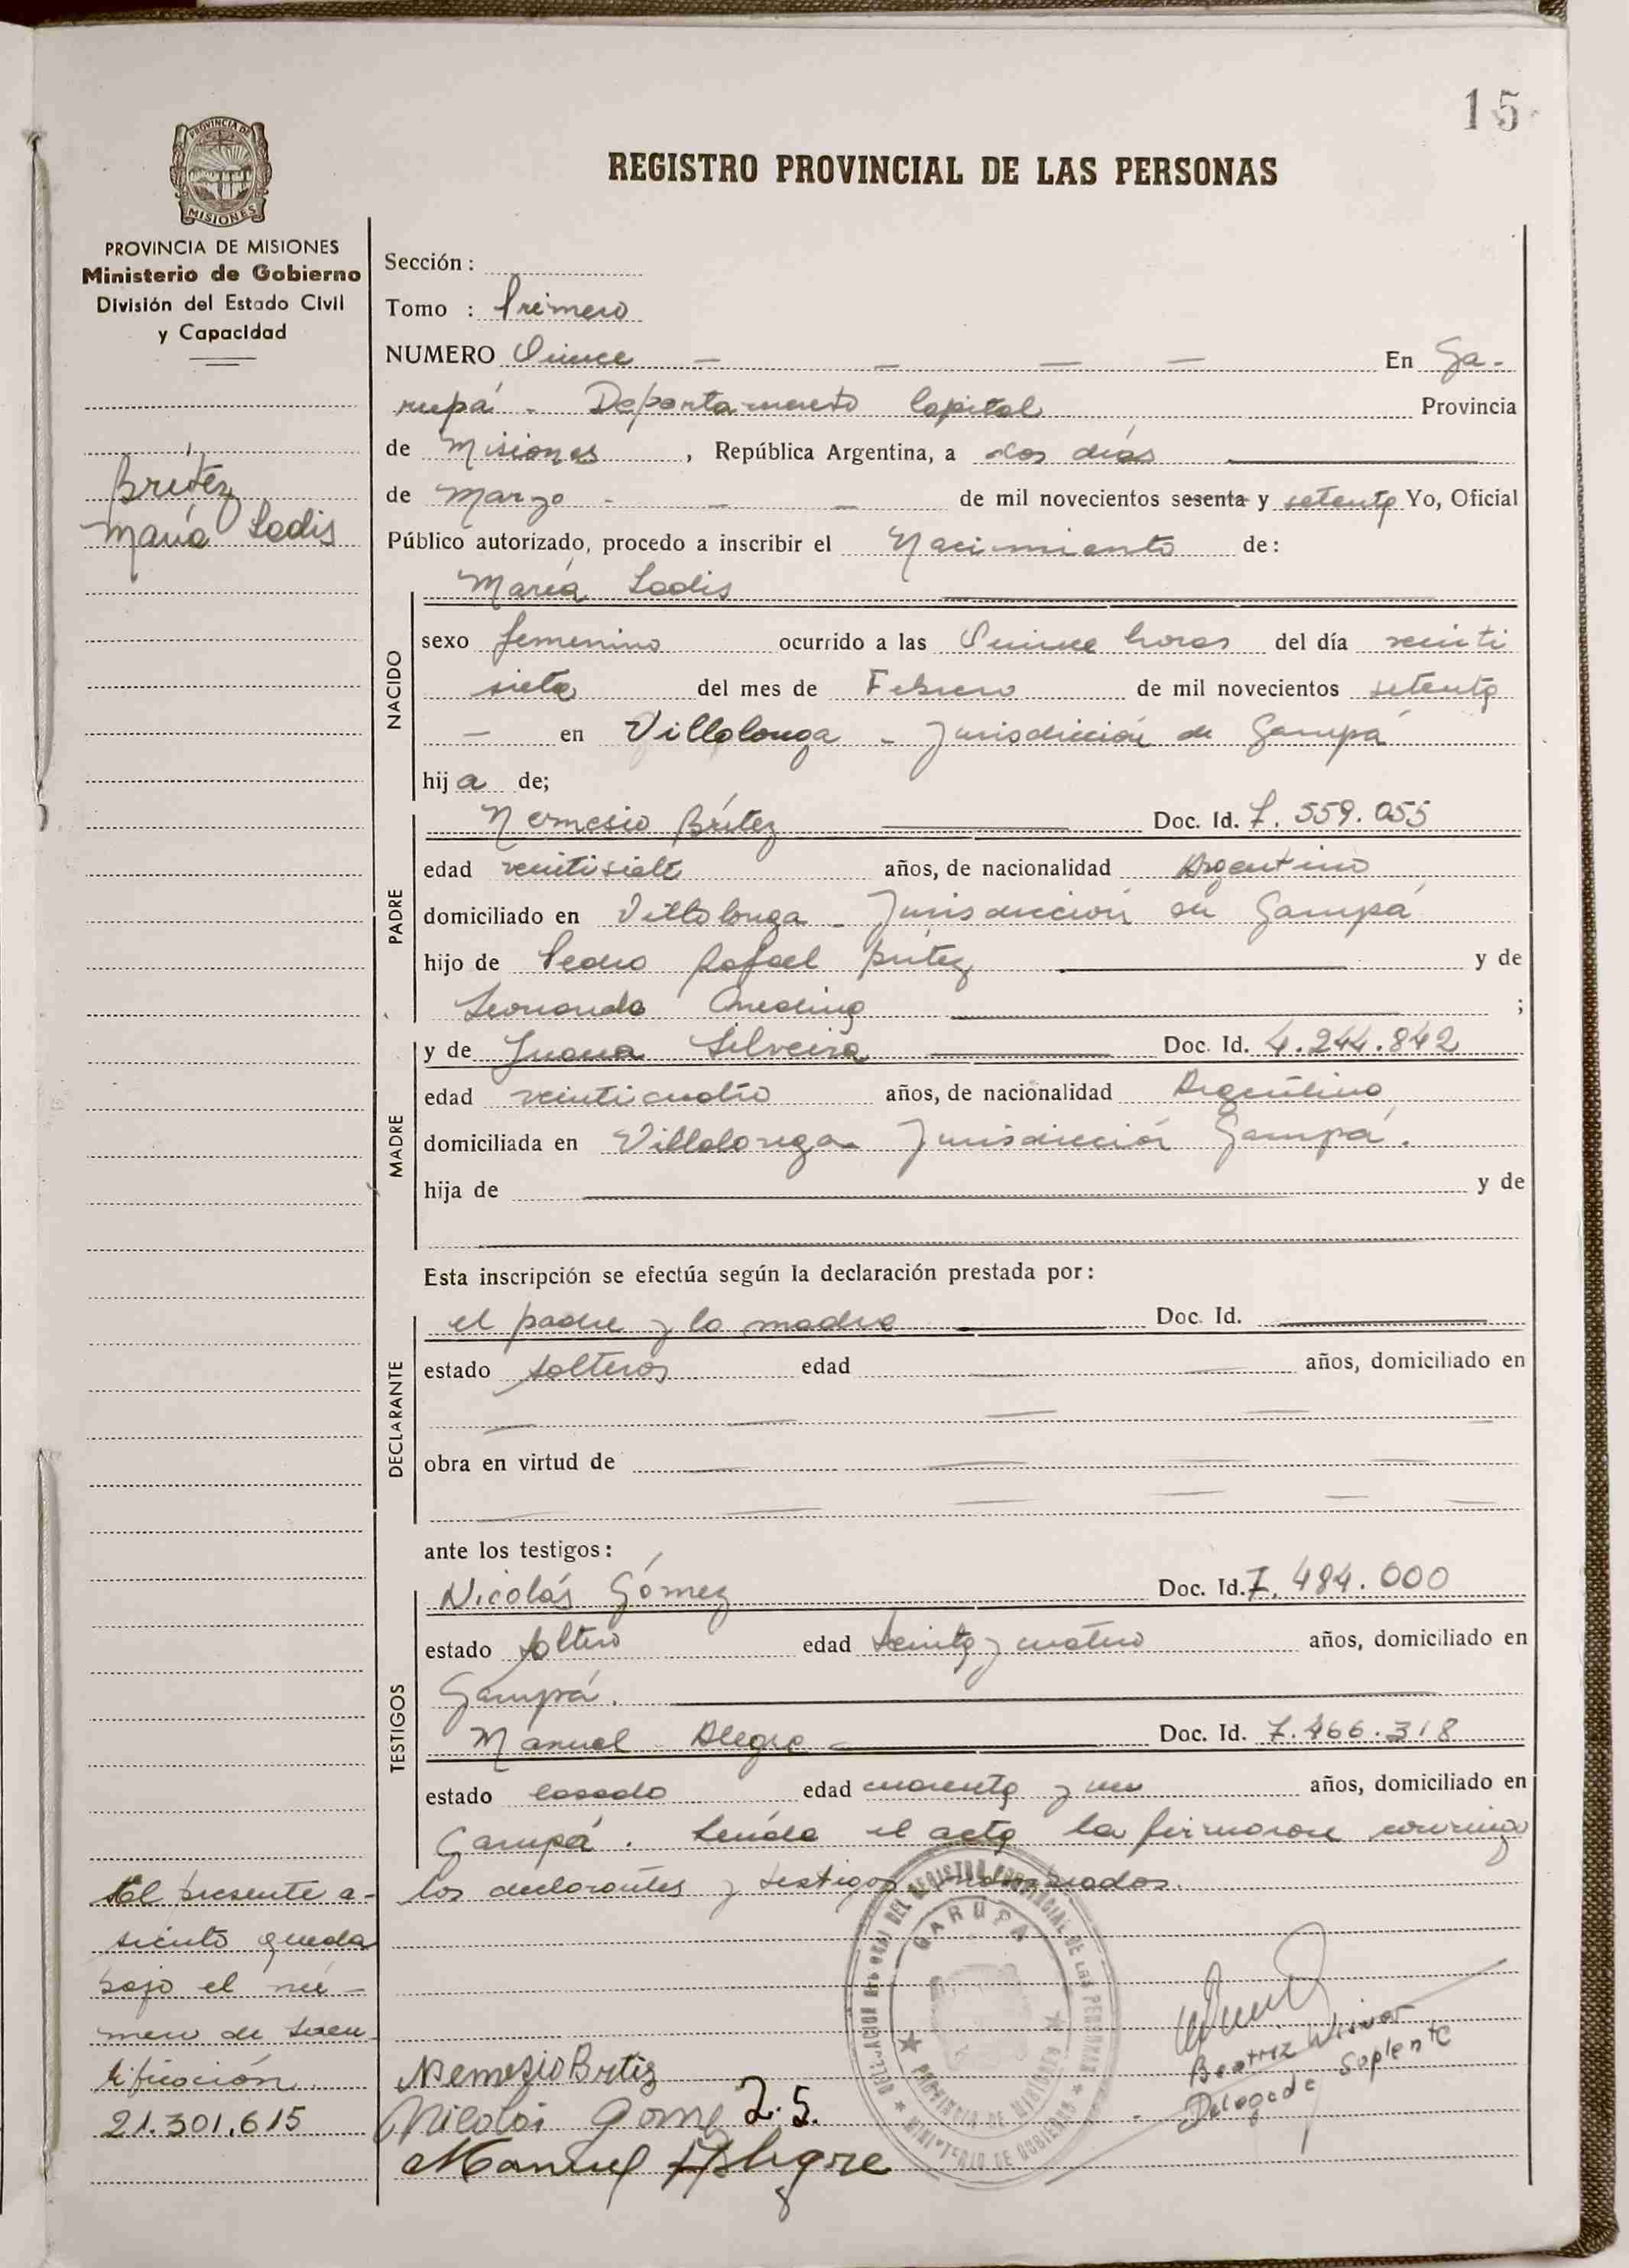 15
PROVINCIA DE
MISIONES
REGISTRO PROVINCIAL DE LAS PERSONAS
PROVINCIA DE MISIONES
Ministerio de Gobierno
División del Estado Civil
y Capacidad
Brítez
María Ladis
Sección :
Tomo : Primero
NUMERO Quince — — — — En Ga-
rupá - Departamento Capital Provincia
de Misiones , República Argentina, a dos días
de Marzo - — — de mil novecientos sesenta y setenta Yo, Oficial
Público autorizado, procedo a inscribir el Nacimiento de:
María Ladis
NACIDO
sexo femenino ocurrido a las Quince horas del día veinti
siete del mes de Febrero de mil novecientos setenta
— en Villalonga - Jurisdicción de Garupá
hija de;
PADRE
Nemesio Brítez Doc. Id. 7.559.055
edad veintisiete años, de nacionalidad Argentino
domiciliado en Villalonga - Jurisdicción de Garupá
hijo de Pedro Rafael Brítez y de
Leonarda ;
MADRE
y de Juana Silveira Doc. Id. 4.244.842
edad veinticuatro años, de nacionalidad Argentina
domiciliada en Villalonga - Jurisdicción Garupá.
hija de y de
Esta inscripción se efectúa según la declaración prestada por:
DECLARANTE
el padre y la madre Doc. Id.
estado solteros edad — años, domiciliado en
— — — — —
obra en virtud de — — — —
— — — — —
ante los testigos:
TESTIGOS
Nicolás Gómez Doc. Id. 7.484.000
estado soltero edad treinta y cuatro años, domiciliado en
Garupá.
Manuel Alegre — Doc. Id. 7.466.318
estado casado edad cuarenta y un años, domiciliado en
Garupá. Leída el acta la firmaron conmigo
los declarantes y testigos
El presente a-
siento queda
bajo el nú-
mero de iden
tificación
21.301.615
DEL REGISTRO PROVINCIAL DE LAS PERSONAS
GARUPA
PROVINCIA DE MISIONES
MINISTERIO DE GOBIERNO
Nemesio Brtis
Nicolas Gome J.S.
Manuel Alegre
Beatriz
Delegada Suplente